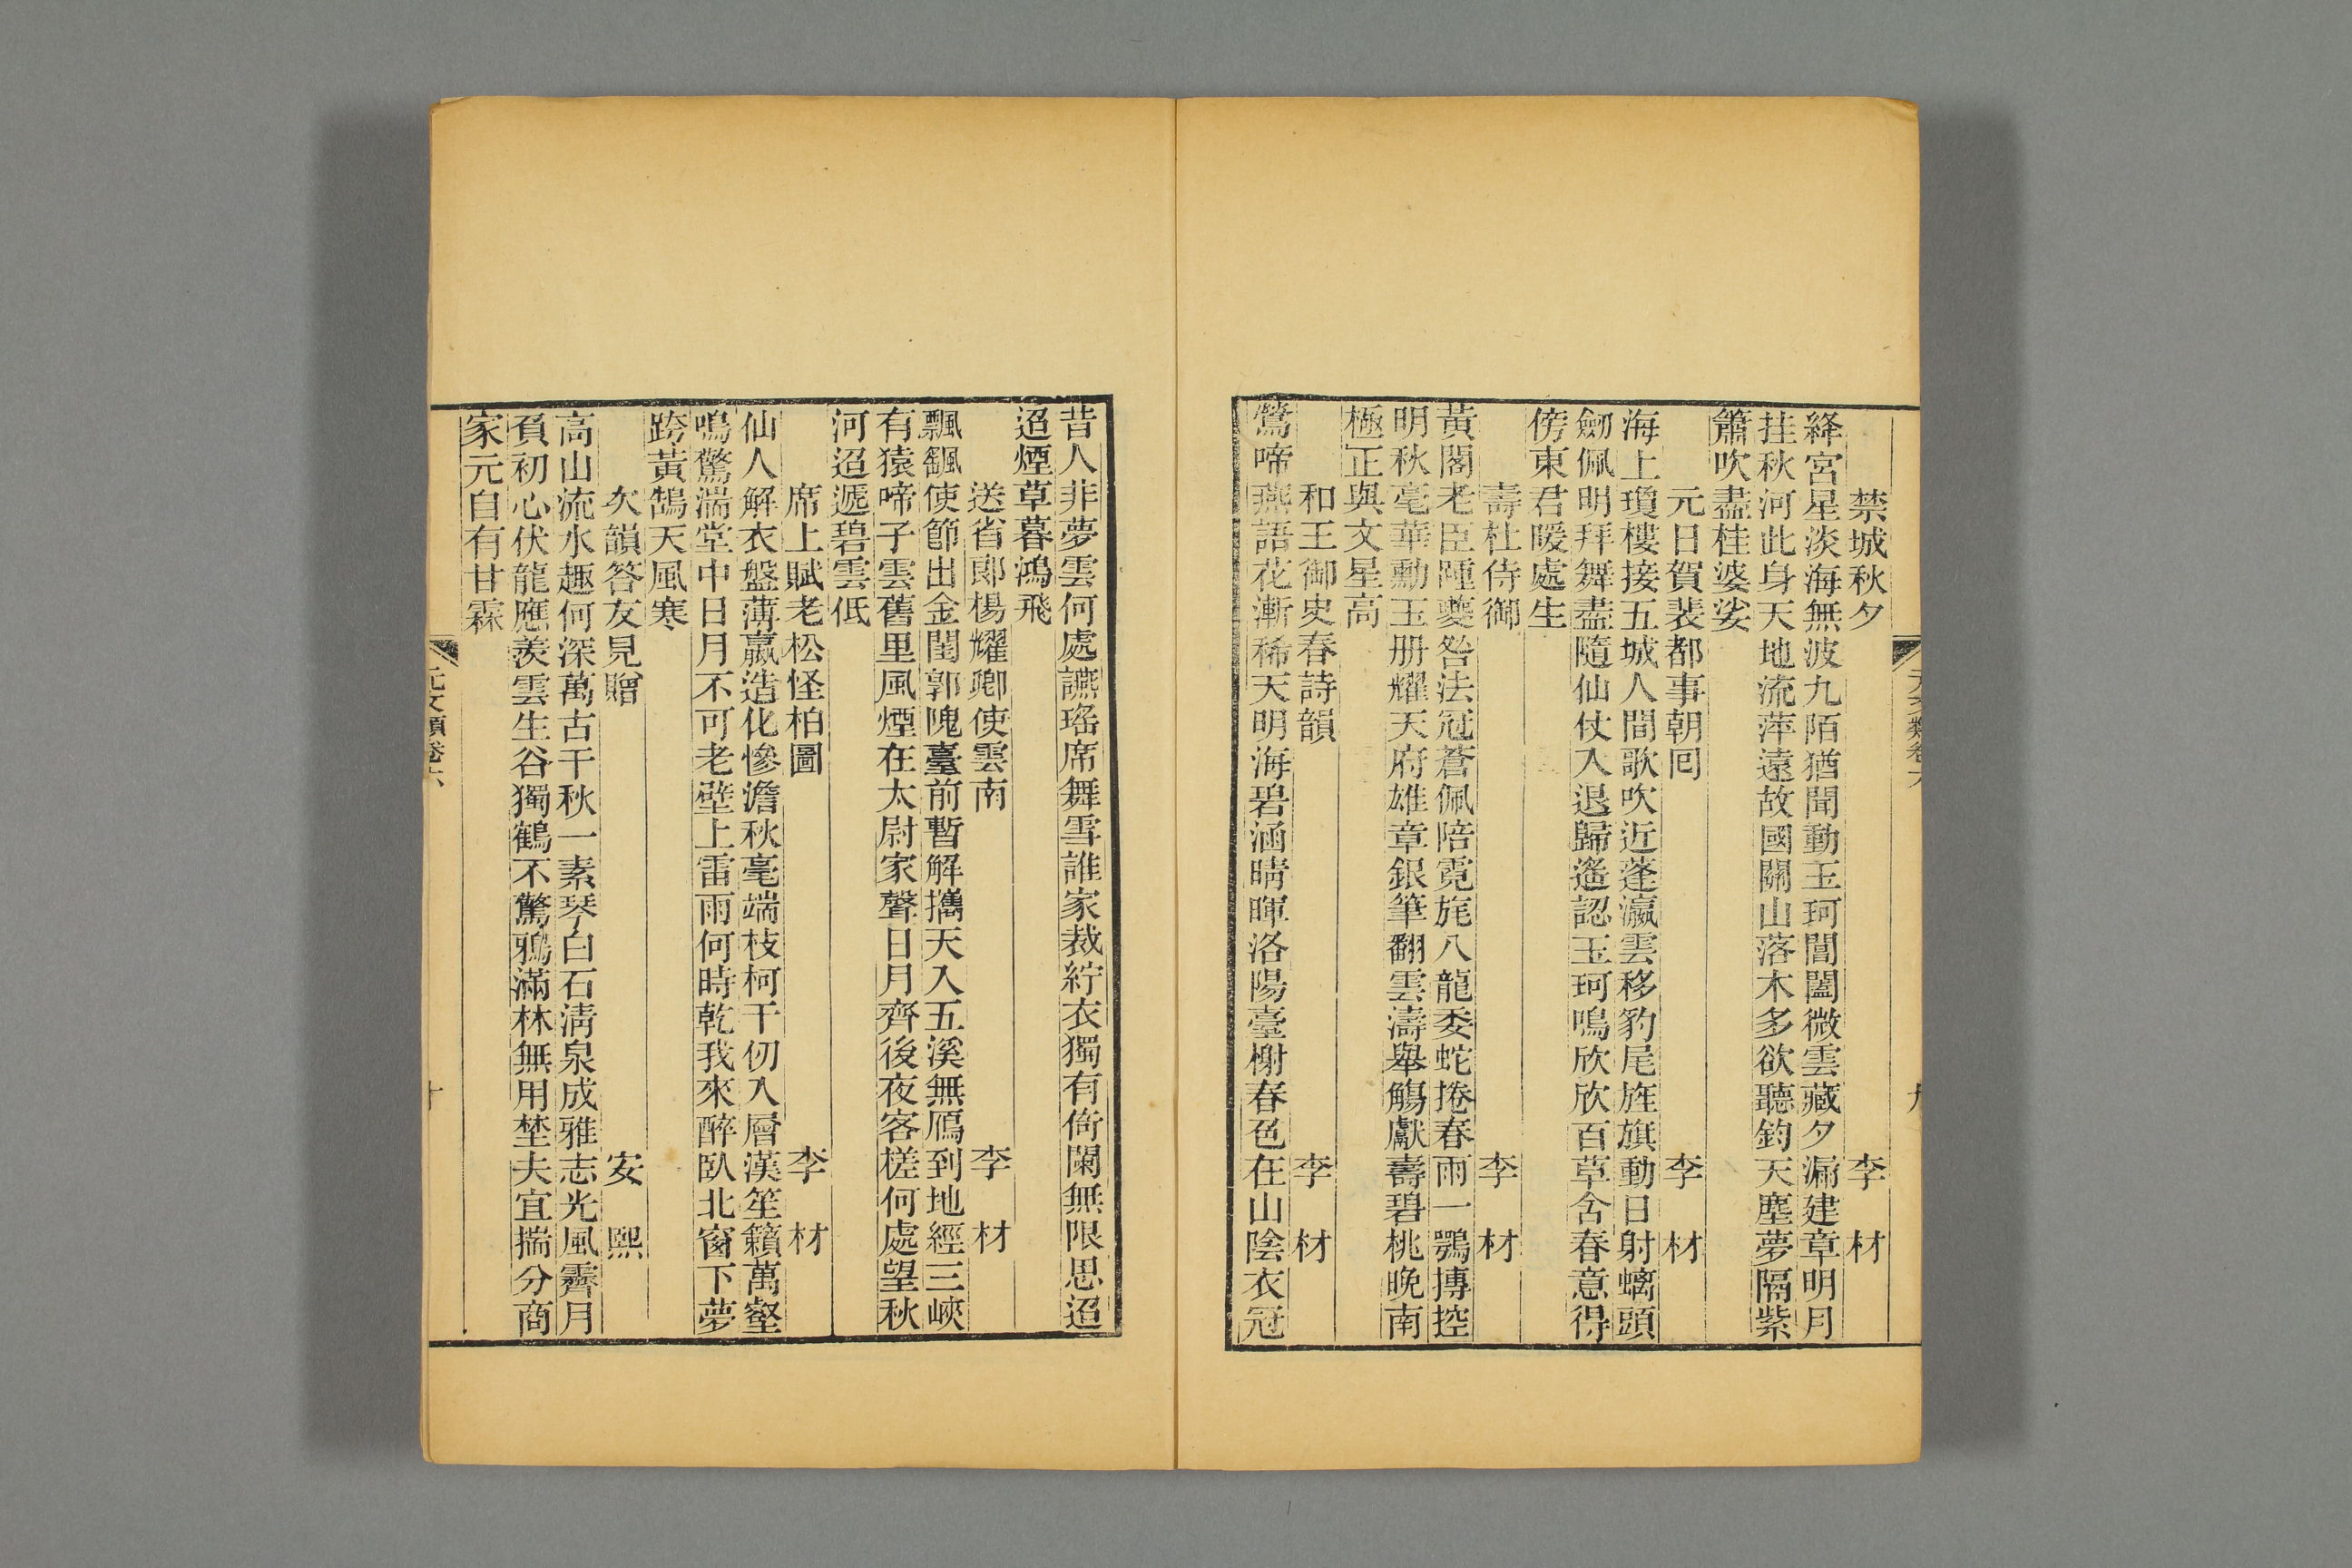 禁城秋夕 李材
絳宮星淡海無波九陌猶聞動玉珂閶闔微雲藏夕漏建章明月
挂秋河此身天地流萍遠故國關山落木多欲聽鈞天塵夢隔紫
簫吹盡桂婆娑
元日賀裴都事朝囘 李材
海上瓊樓接五城人間歌吹近蓬瀛雲移豹尾旌旗動日射螭頭
劒佩明拜舞盡隨仙仗入退歸遙認玉珂鳴欣欣百草含春意得
傍東君暖處生
壽杜侍御 李材
黃閣老臣踵夔咎法冠蒼佩陪霓旄八龍委蛇捲春雨一鶚摶控
明秋毫華勳玉册耀天府雄章銀筆翻雲濤舉觴獻壽碧桃晚南
極正與文星高
和王御史春詩韻 李材
鶯啼燕語花漸稀天明海碧涵晴暉洛陽臺榭春色在山陰衣冠
元文類卷六
九
昔人非夢雲何處讌瑤席舞雪誰家裁紵衣獨有倚闌無限思迢
迢煙草暮鴻飛
送省郎楊耀卿使雲南 李材
飄飄使節出金閨郭隗臺前暫解攜天入五溪無鴈到地經三峽
有猿啼子雲舊里風煙在太尉家聲日月齊後夜客槎何處望秋
河迢遞碧雲低
席上賦老松怪柏圖 李材
仙人解衣盤薄羸造化慘澹秋毫端枝柯千仞入層漢笙籟萬壑
鳴驚湍堂中日月不可老壁上雷雨何時乾我來醉臥北窗下夢
跨黃鵠天風寒
次韻答友見贈 安熙
高山流水趣何深萬古千秋一素琴白石清泉成雅志光風霽月
負初心伏龍應羨雲生谷獨鶴不驚鴉滿林無用埜夫宜揣分商
家元自有甘霖
元文類卷六
十